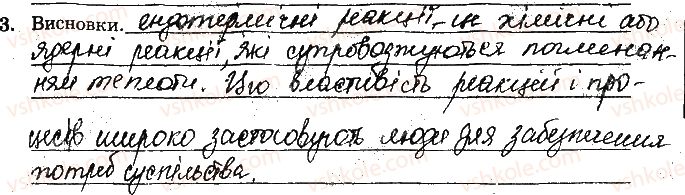 3. Висновки. ендотермічні реакції – це хімічні або
ядерні реакції, які супроводжуються поглинан-
ням теплоти. Цю властивість реакцій і про-
цесів широко застосовують люди для забезпечення
потреб суспільства.